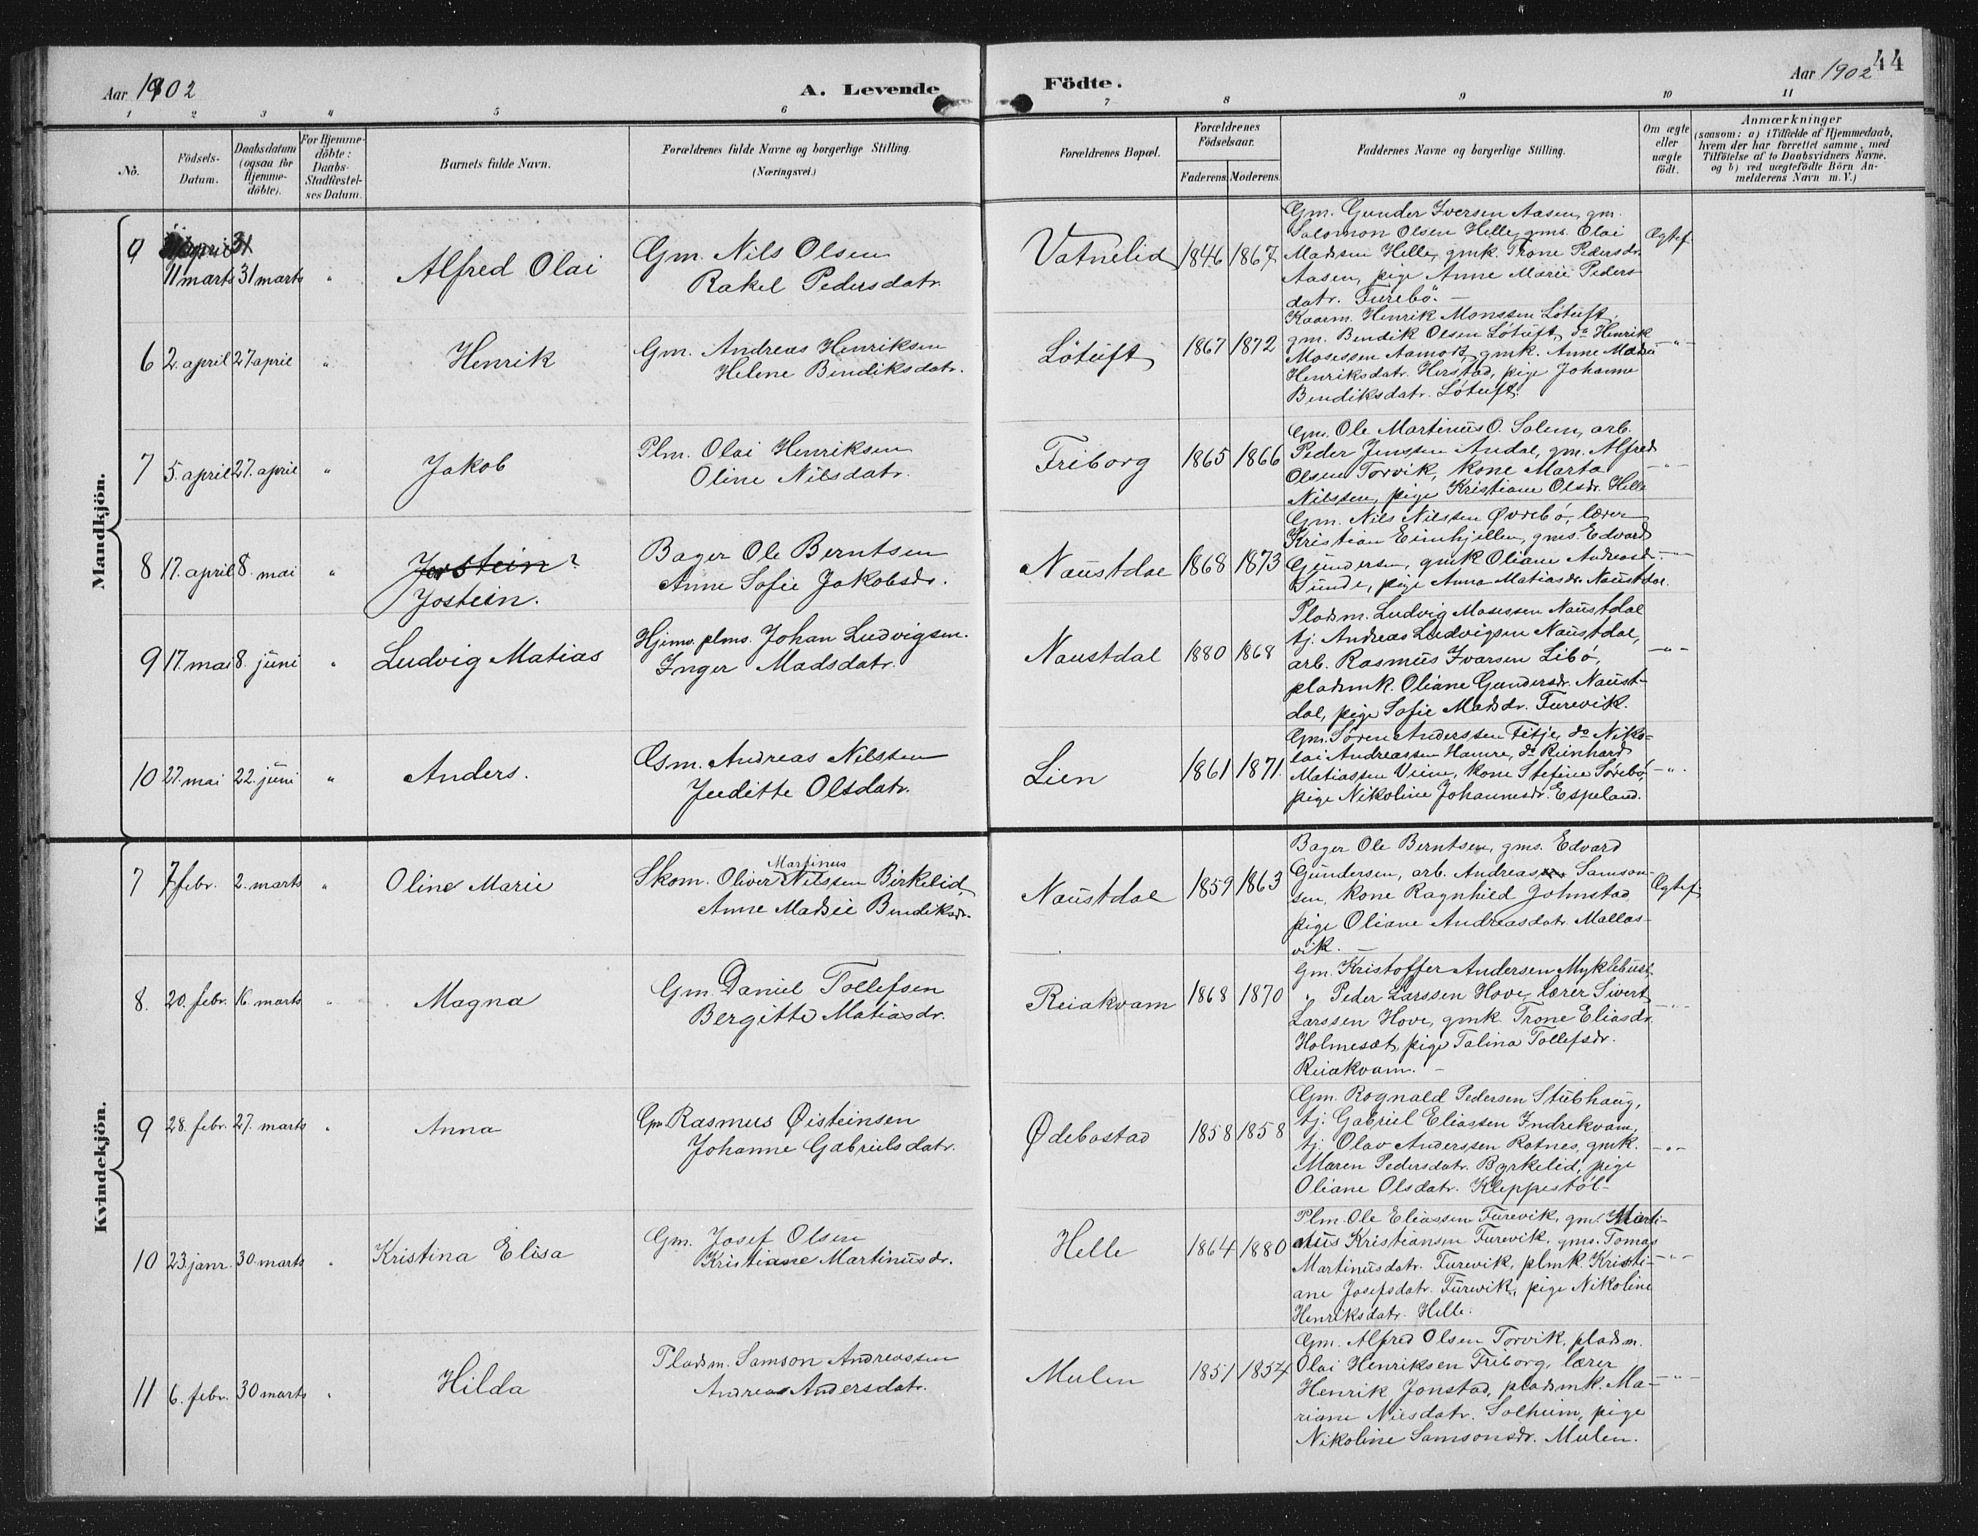 Aar 1902
A. Levende
Födte.
Aar 1902
44
1 2 3 4 5 6 7 8 9 10 11
No.
Födsels-
Datum.
Daabsdatum
(ogsaa for
Hjemme-
döbte).
For Hjemme-
döbte:
Daabs-
Stadfæstel-
ses Datum.
Barnets fulde Navn.
Forældrenes fulde Navne og borgerlige Stilling
(Næringsvei.)
Forældrenes Bopæl.
Forældrenes
Födselsaar.
Faderens. Moderens.
Faddernes Navne og borgerlige Stilling.
Om ægte
eller
uægte
födt.
Anmærkninger
(saasom: a) i Tilfælde af Hjemmedaab,
hvem der har forrettet samme, med
Tilföielse af to Daabsvidners Navne.
og b) ved uægtefödte Börn An-
melderens Navn m. V.)
Mandkjön.
9 11 marts 31 marts " Alfred Olai
Gm. Nils Olsen
Rakel Pedersdatr.
Vatnelid 1846 1867
Gm. Gunder Iversen Aasen, gm.
Salomon Olsen Helle, gms. Olai
Madsen Helle, gmk. Trone Pedersdr.
Aasen, pige Anne Marie Peders
datr. Furebö. –
Ægtef.
6 2. april 27 april " Henrik
Gm. Andreas Henriksen
Helene Bendiksdatr.
Løtuft 1867 1872
Kaarm. Henrik Monssen Løtuft,
gm. Bendik Olsen Løtuft, do Henrik
Mosessen Aamot, gmk. Anne Marie
Henriksdatr. Herstad, pige Johanne
Bendiksdatr. Løtuft.
–"–
7 5. april 27. april " Jakob
Plm. Olai Henriksen
Oline Nilsdatr.
Friborg 1865 1866
Gm. Ole Martinus O. Solem, arb.
Peder Jenssen Andal, gm. Alfred
Olsen Torvik, kone Marta
Nilssen, pige Kristiane Olsdr. Helle
–"–
8 17. april 8. mai " Jostein?
Jostein.
Bager Ole Berntsen
Anne Sofie Jakobsdr.
Naustdal 1868 1873
Gm. Nils Nilssen Øvrebö, lærer
Kristian Eimhjellen, gms. Edvard
Gundersen, gmk Oliane Andreasd.
Sunde, pige Anna Matiasdr. Naustdal.
–"–
9 17. mai 8. juni " Ludvig Matias
Hjemv. plms. Johan Ludvigsen.
Inger Madsdatr.
Naustdal 1880 1868
Pladsm. Ludvig Mosessen Naustdal
tj. Andreas Ludvigsen Naustdal,
arb. Rasmus Ivarsen Libö,
pladsmk. Oliane Gundersdr. Naust-
dal, pige Sofie Madsdr. Furevik.
–"–
10 27. mai 22. juni " Anders.
Gsm. Andreas Nilssen
Juditte Olsdatr.
Lien 1861 1871.
Gm. Søren Anderssen Fitje, do Niko-
lai Andreassen Hamre, do Reinhard
Matiassen Viine, kone Stefine Sørebö,
pige Nikoline Johannesdr. Espeland.
–"–.
Kvindekjön.
7 7 febr. 2. marts " Oline Marie
Martinus
Skom. Oliver Nilssen Birkelid
Anne Marie Bendiksdr.
Naustdal 1859 1863
Bager Ole Berntsen, gms. Edvard
Gundersen, arb. Andreas Samson-
sen, kone Ragnhild Johnstad
pige Oliane Andreasdatr. Mallas-
vik. –
Ægtef
8. 20. febr. 16 marts " Magna
Gm. Daniel Tollefsen
Bergitte Matiasdr.
Reiakvam 1868 1870
Gm. Kristoffer Andersen Myklebust
" Peder Larssen Hove, lærer Sivert
Larssen Hove, gmk. Trone Eliasdr.
Holmesæt, pige Talina Tollefsdr.
Reiakvam. –
–"–
9 28. febr. 27. marts " Anna
Gm Rasmus Øisteinsen
Johanne Gabrielsdatr.
Ødebostad 1858 1858
Gm. Rognald Pedersen Stubhaug,
tj. Gabriel Eliassen Indrekvam,
tj. Olav Anderssen Rotnes, gmk.
Maren Pedersdatr. Byrkelid, pige
Oliane Olsdatr. Kleppestöl –
–"–
10 23 janr. 30 marts " Kristina Elisa
Gm. Josef Olsen
Kristiane Martinusdr.
Helle 1864 1880
Plm. Ole Eliassen Furevik, gm. Marti-
nus Kristiansen Furevik, gms. Tomas
Martinusdatr. Furevik, plmk. Kristi-
ane Josefsdatr. Furevik, pige Nikoline
Henriksdatr. Helle.
–"–
11 6. febr. 30 marts " Hilda
Pladsm. Samson Andreassen
Andrea Andersdatr.
Mulen 1851 1854
Gm. Alfred Olsen Torvik, pladsm.
Olai Henriksen Friborg, lærer
Henrik Jonstad, pladsmk. Ma-
riane Nilsdatr. Solheim, pige
Nikoline Samsonsdr. Mulen.
–"–